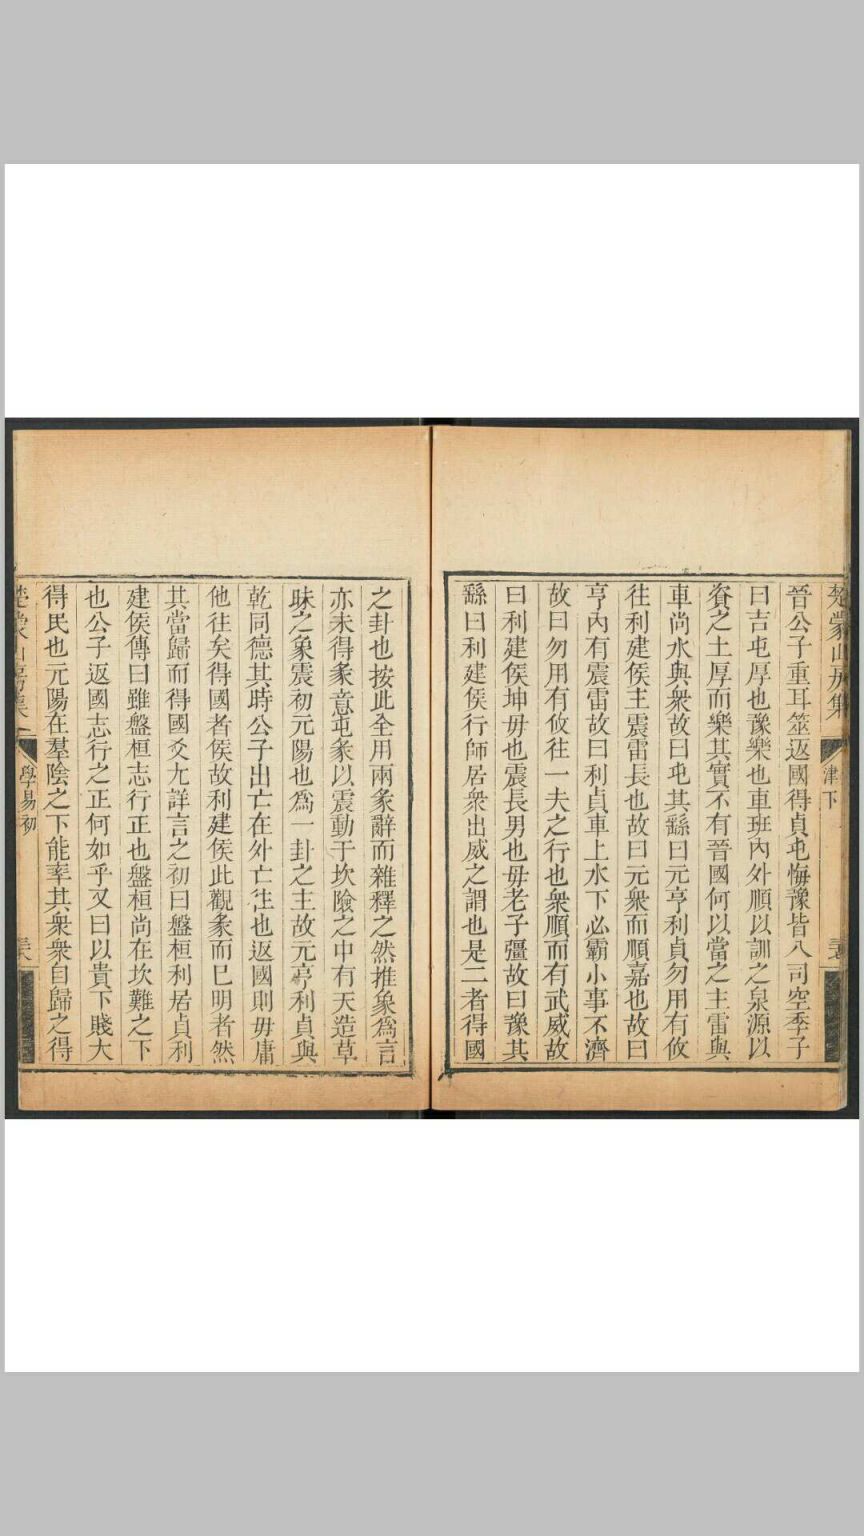 楚蒙山房集
津下
晉公子重耳筮返國得貞屯悔豫皆八司空季子
曰吉屯厚也豫樂也車班內外順以訓之泉源以
資之土厚而樂其實不有晉國何以當之主雷與
車尚水與衆故曰屯其繇曰元亨利貞勿用有攸
往利建侯主震雷長也故曰元衆而順嘉也故曰
亨內有震雷故曰利貞車上水下必霸小事不濟
故曰勿用有攸往一夫之行也衆順而有武威故
曰利建侯坤毋也震長男也毋老子彊故曰豫其
繇曰利建侯行師居衆出威之謂也是二者得國
之卦也按此全用兩彖辭而雜釋之然推象爲言
亦未得彖意屯彖以震動于坎險之中有天造草
昧之象震初元陽也爲一卦之主故元亨利貞與
乾同德其時公子出亡在外亡往也返國則毋庸
他往矣得國者侯故利建侯此觀彖而已明者然
其當歸而得國爻尤詳言之初曰盤桓利居貞利
建侯傳曰雖盤桓志行正也盤桓尚在坎難之下
也公子返國志行之正何如乎又曰以貴下賤大
得民也元陽在羣陰之下能率其衆衆自歸之得
楚蒙山房集
學易初